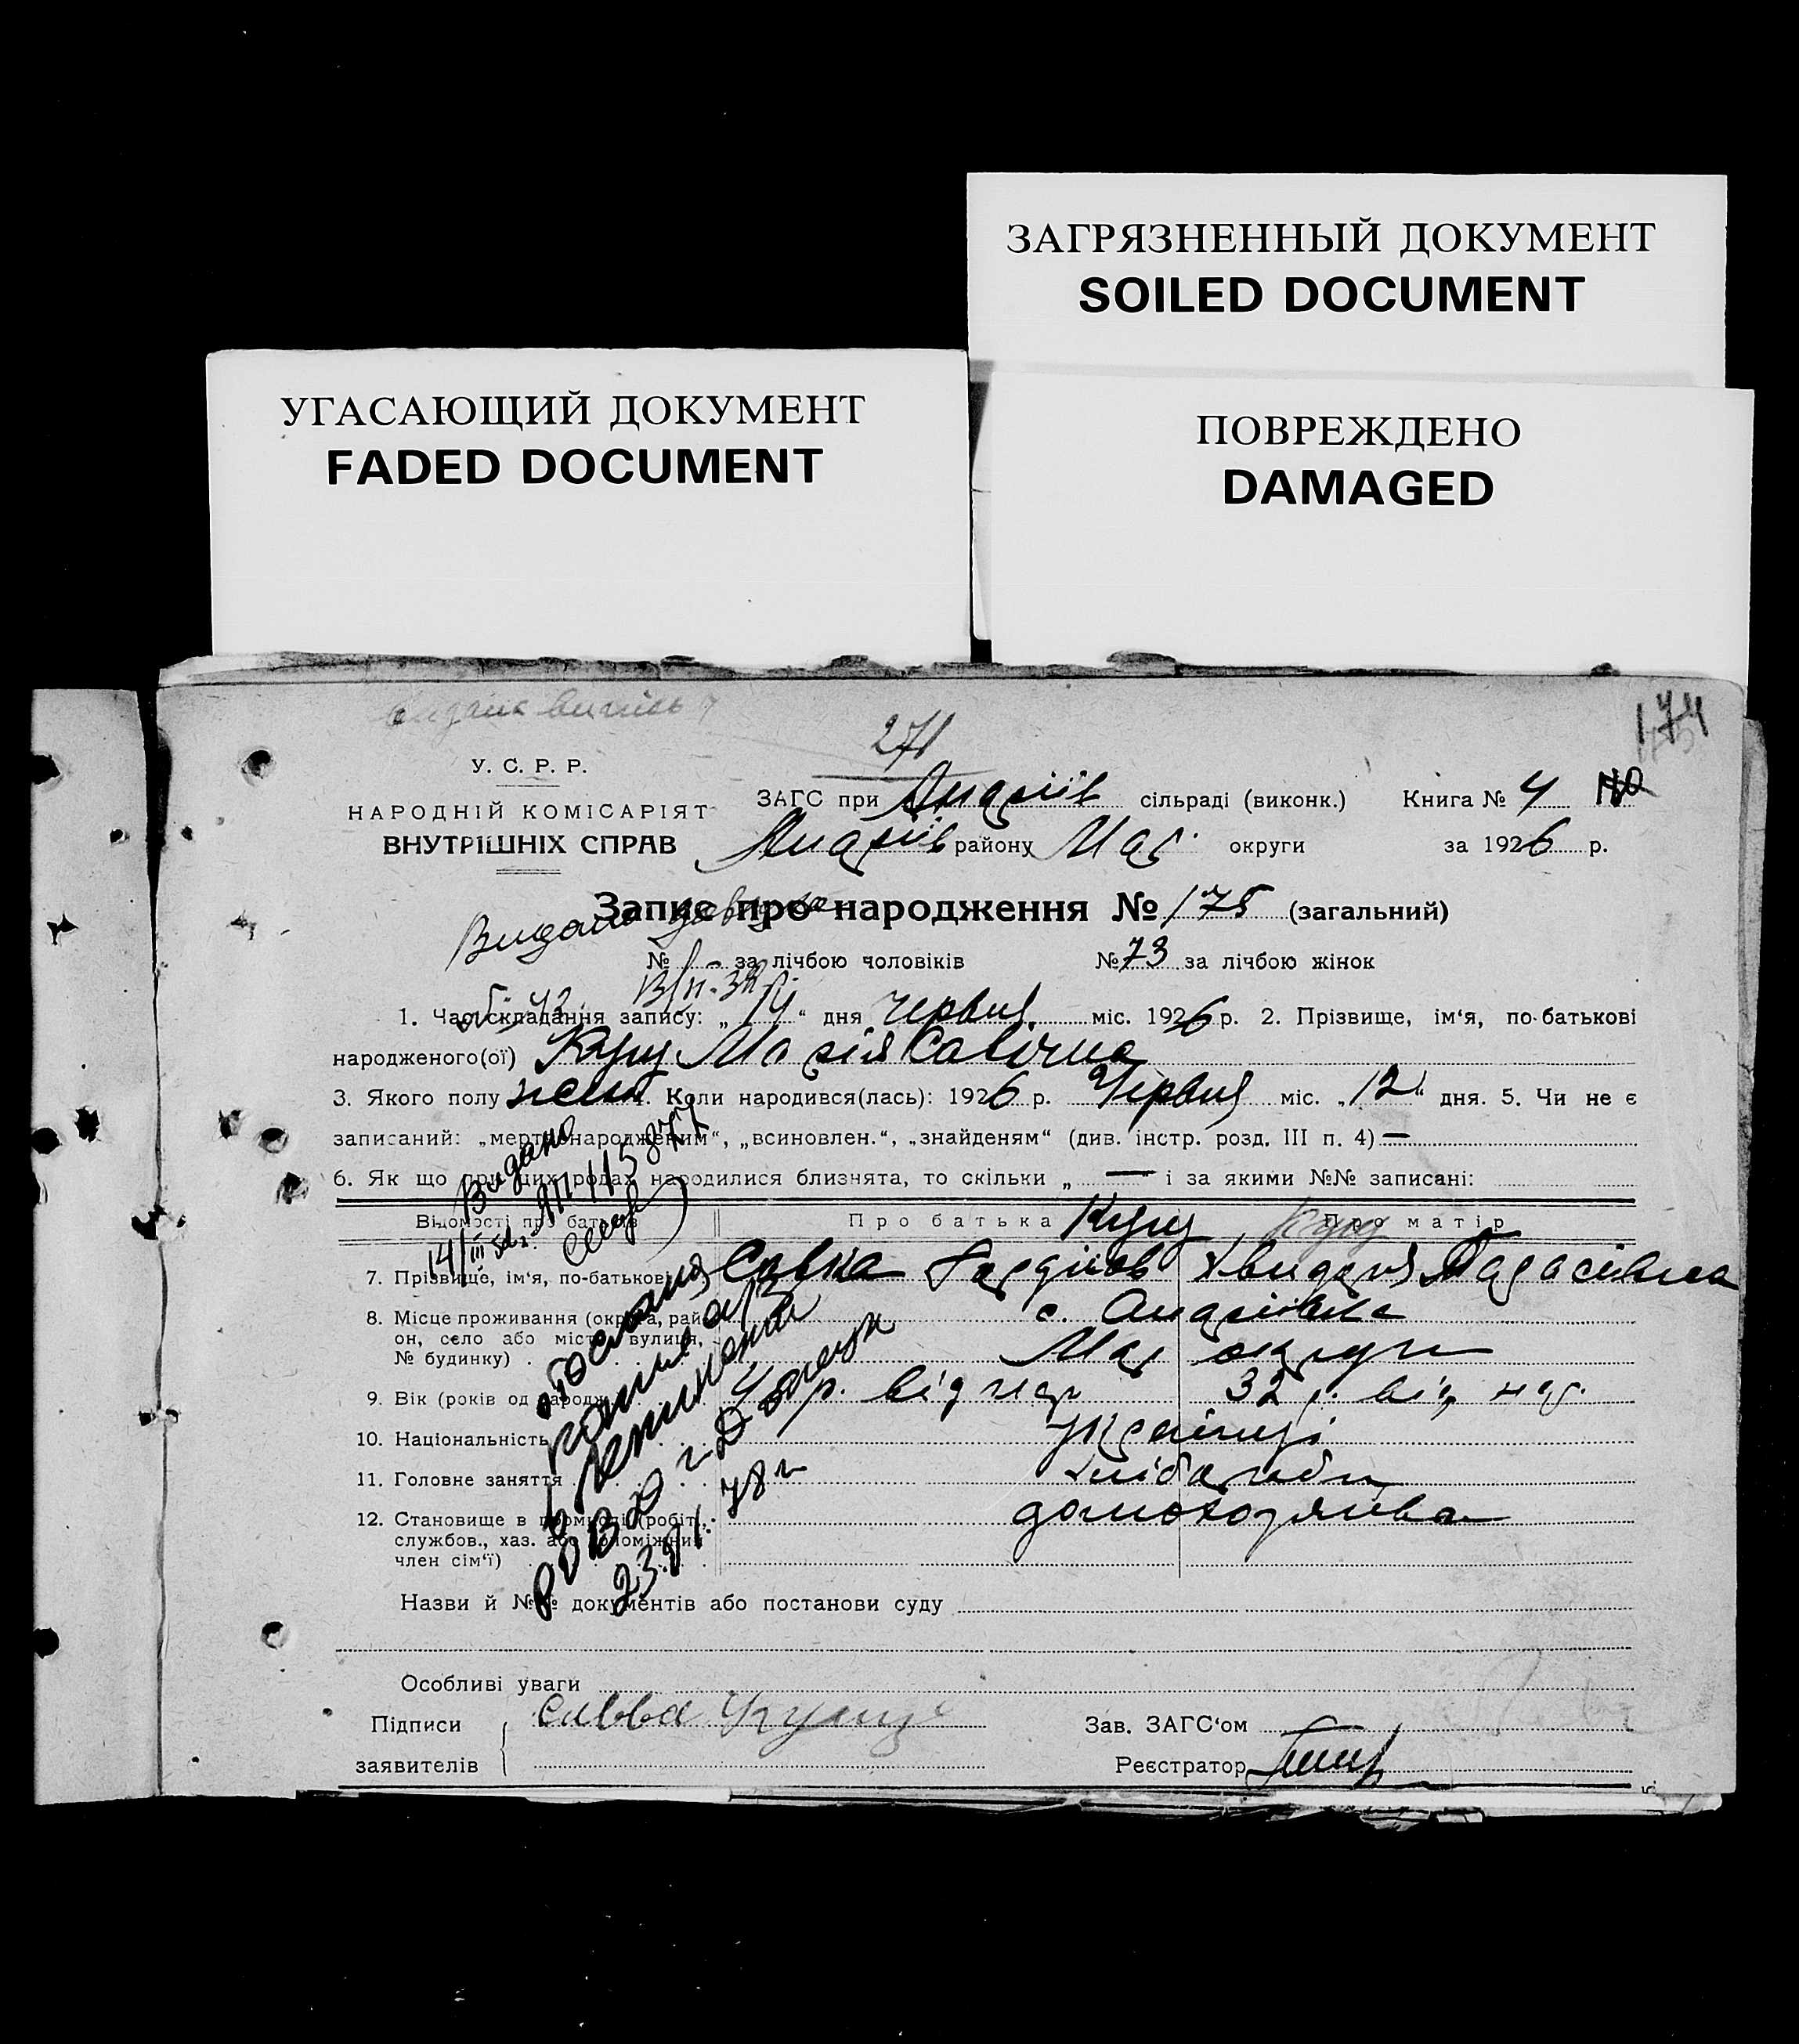 ЗАГРЯЗНЕННЫЙ ДОКУМЕНТ
SOILED DOCUMENT
УГАСАЮЩИЙ ДОКУМЕНТ
FADED DOCUMENT
ПОВРЕЖДЕНО
DAMAGED
174
271
У. С. Р. Р.
НАРОДНІЙ КОМІСАРІЯТ
ВНУТРІШНІХ СПРАВ
ЗАГС при Андріїв сільраді (виконк.) Книга № 4
Андріїв району Мар. округи за 1926 р.
Запис про народження № 175 (загальний)
Видано
№ за лічбою чоловіків № 73 за лічбою жінок
1. Час складання запису: „14“ дня червня міс. 1926 р. 2. Прізвище, ім‘я, по-батькові
народженого(ої) Кущ Марія Савічна
3. Якого полу жен 4. Коли народився(лась): 1926 р. Червня міс. „12“ дня. 5. Чи не є
записаний: „мертвонародженим“, „всиновлен.“, „знайденям“ (див. інстр. розд. III п. 4) —
6. Як що при цих родах народилися близнята, то скільки „—“ і за якими №№ записані:
Видано
Відомості про батьків Про батька Кущ Про матір Кущ
7. Прізвище, ім‘я, по-батькові Савка Гордіїв Хвидора Тарасівна
8. Місце проживання (округа, рай-
он, село або місто, вулиця,
№ будинку) с. Андріївка
Мар округи
9. Вік (років од народж.) р. від нар 32 р. від нар.
10. Національність Українці
11. Головне заняття хлібороби
12. Становище в промислі (робіт.,
службов., хаз. або допоміжний
член сім‘ї)
Назви й №№ документів або постанови суду
РОВД г. Донецк
Особливі уваги
Підписи
заявителів
Савва Кущ
Зав. ЗАГС‘ом
Реєстратор